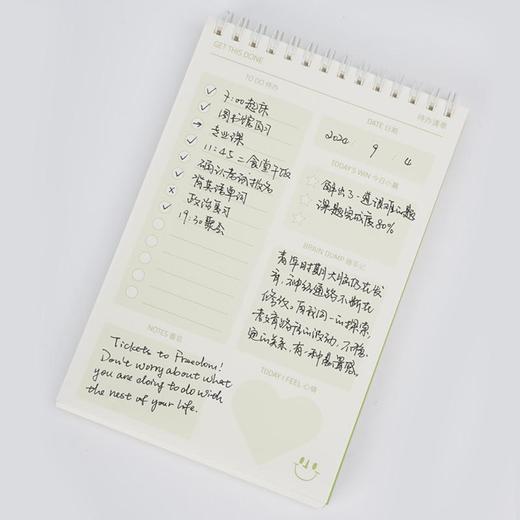 GET THIS DONE
待办清单
TO DO 待办
7:00起床
图书馆自习
专业课
11:45 二食堂干饭
确认考试报名
背英语单词
政治复习
19:30聚会
DATE 日期
2024 / 9 / 4
TODAY'S WIN 今日小赢
解出了一道很难的题
课题完成度80%
BRAIN DUMP 随手记
青年时期大脑仍在发
育,神经通路不断在
修改。自我同一的探索,
教育路径的波动,不稳
定的关系,有一种悬置感。
NOTES 备忘
Tickets to Freedom!
Don't worry about what
you are doing to do with
the rest of your life.
TODAY I FEEL 心情